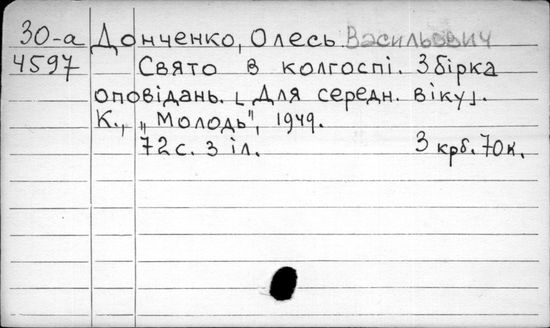 30-а Донченко, Олесь Васильович
4597 Свято в колгоспі. Збірка
оповідань. [Для середн. віку].
К., „Молодь", 1949.
72 с. з іл. 3 крб. 70 к.